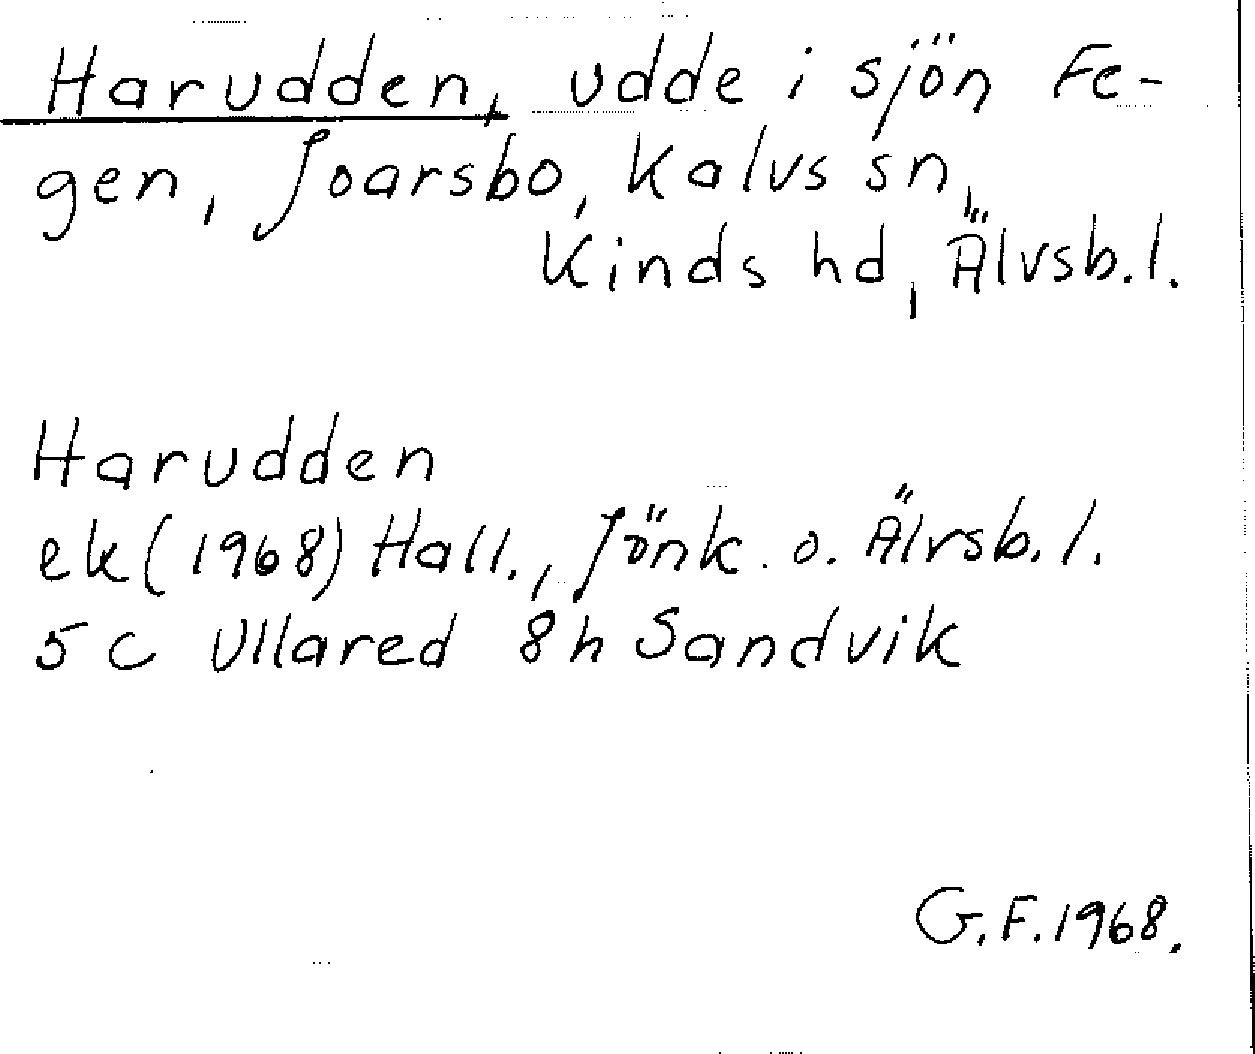 Harudden, udde i sjön Fe-
gen, Joarsbo, Kalvs sn,
Kinds hd, Älvsb.l.
Harudden
ek (1968) Hall., Jönk. o. Älvsb.l.
5 C Ullared 8h Sandvik
G.F.1968.